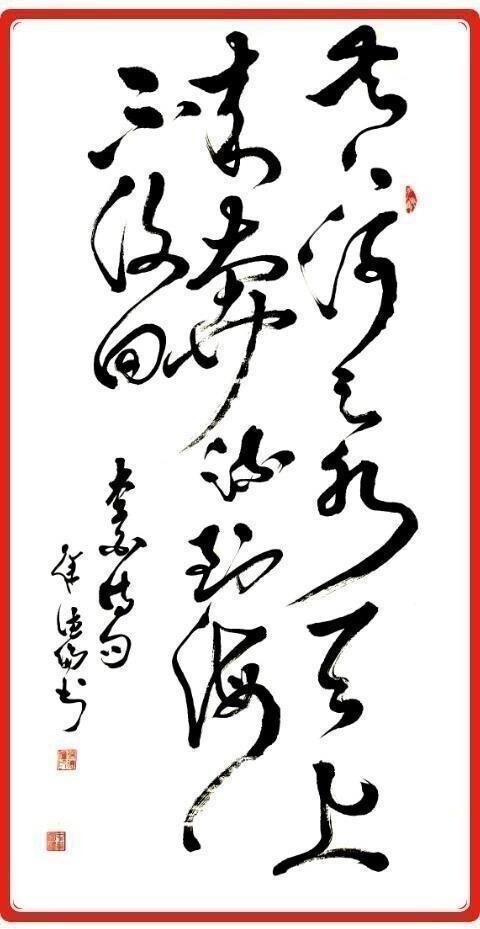 黄河之水天上
来奔流到海
不复回
李白诗句
徐 书